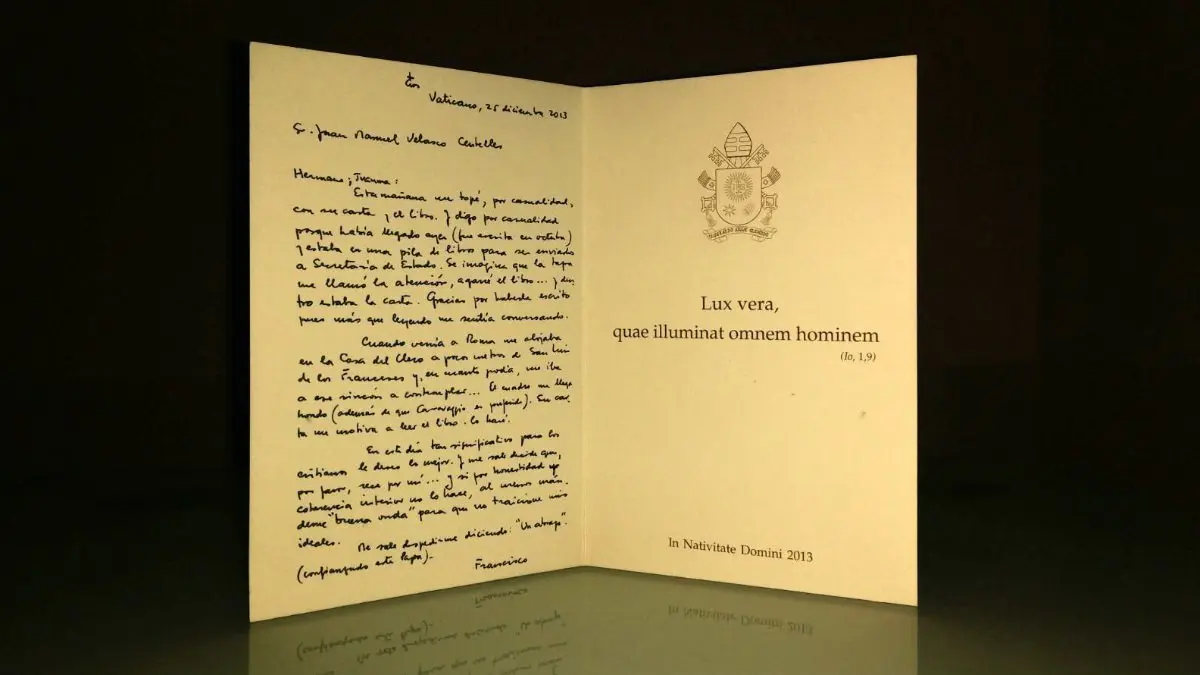 Vaticano, 25 diciembre 2013
Sr. Juan Manuel Velasco Centelles
Hermano, Juanma:
Esta mañana me topé, por casualidad,
con su carta y el libro. Y digo por casualidad
porque había llegado ayer (fue escrita en octubre)
y estaba en una pila de libros para ser enviados
a Secretaría de Estado. Se imagina que la tapa
me llamó la atención, agarré el libro... y den-
tro estaba la carta. Gracias por haberla escrito
pues más que leyendo me sentía conversando.
Cuando venía a Roma me alojaba
en la Casa del Clero a pocos metros de San Luis
de los Franceses y, en cuanto podía, me iba
a ese rincón a contemplar... El cuadro me llega
hondo (además de que Caravaggio es preferido). Su car-
ta me motiva a leer el libro. Lo haré.
En este día tan significativo para los
cristianos le deseo lo mejor. Y me sale decirle que,
por favor, rece por mí... Y si por honestidad y
coherencia interior no lo hace, al menos mán-
deme "buena onda" para que no traicione mis
ideales.
Me sale despedirme diciendo: "Un abrazo".
(confianzudo este Papa).
Francisco
Lux vera,
quae illuminat omnem hominem
(Io, 1,9)
In Nativitate Domini 2013